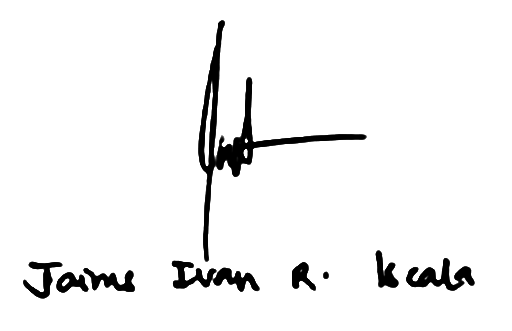 Jaims Ivan R. Iscala